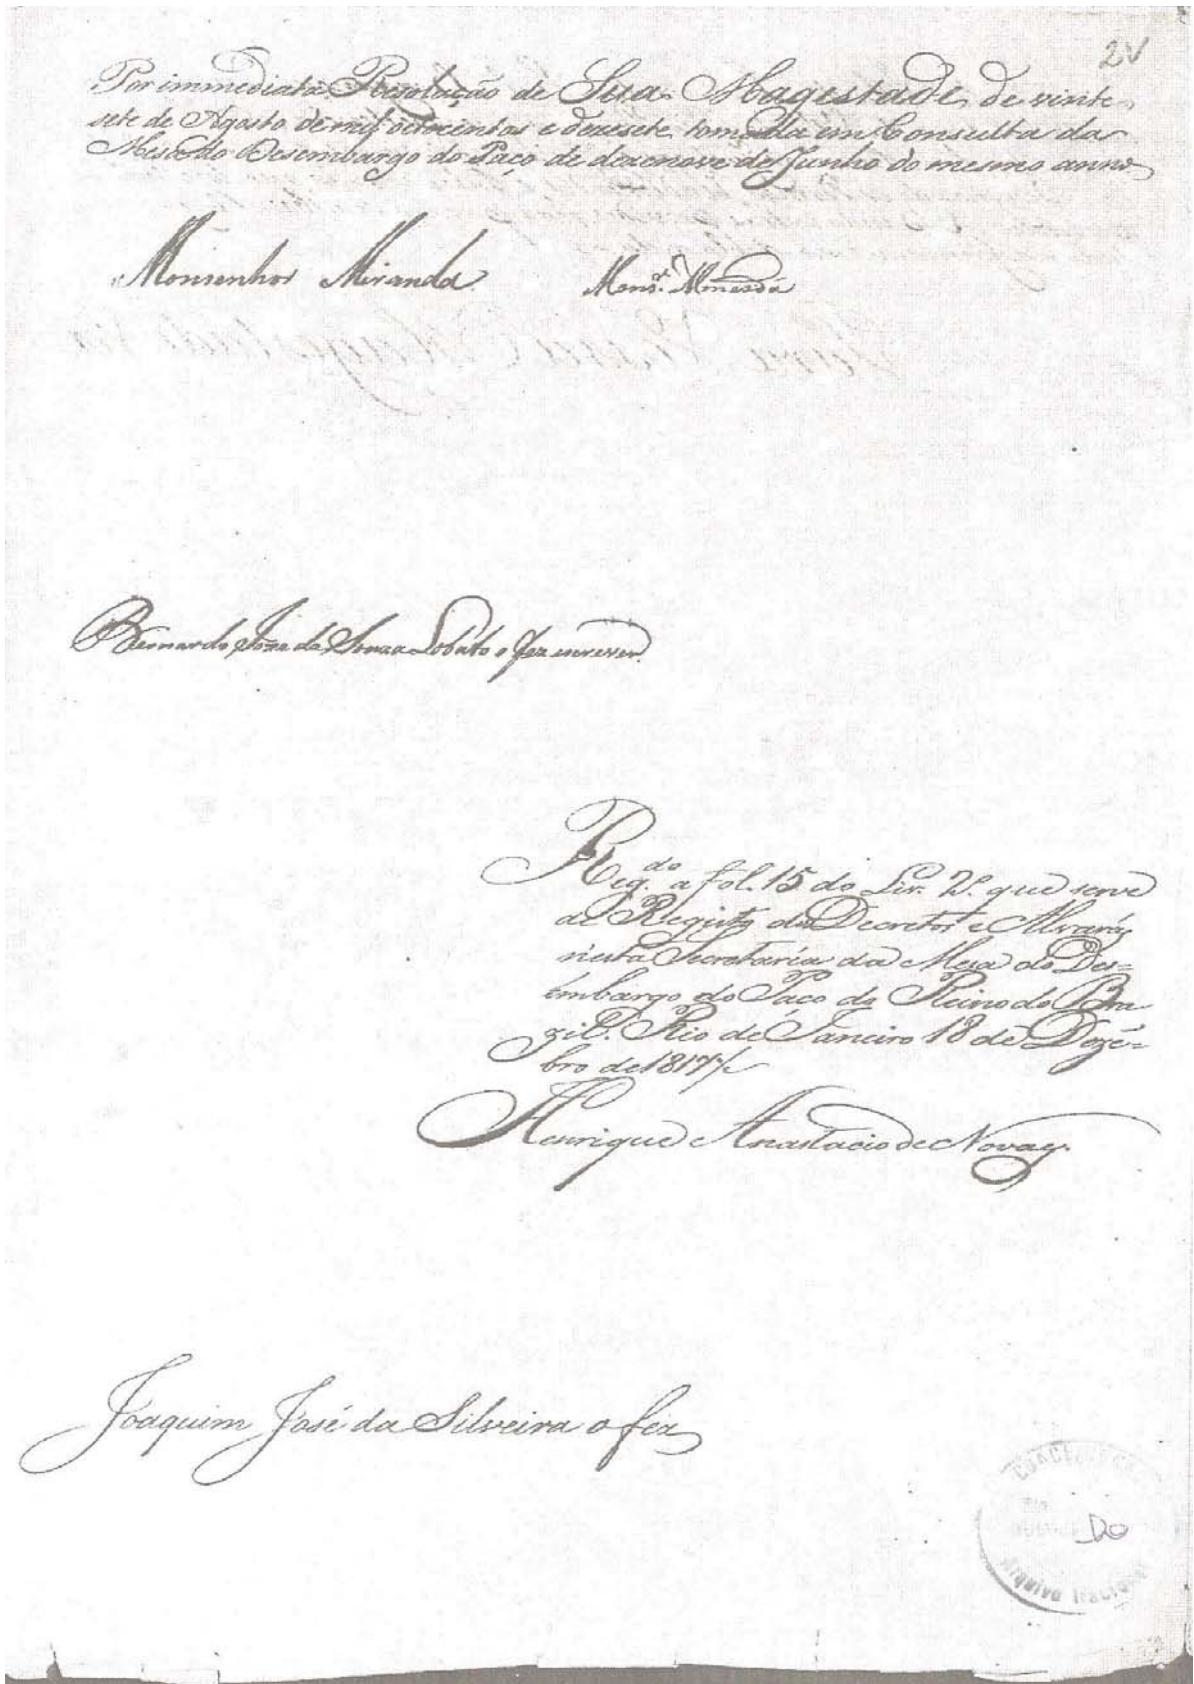 2V
Por immediata Resolução de Sua Magestade de vinte
sete de Agosto de mil oitocentos e dezesete, tomada em Consulta da
Mesa do Desembargo do Paço de dezenove de Junho do mesmo anno
Monsenhor Miranda
Mons.or Almeida
Bernardo Joze de Souza Lobato o fez escrever.
Reg.do a fol. 15 do Liv. 2º que serve
de Registo de Decretos e Alvarás
nesta Secretaria da Mesa do Des=
embargo do Paço do Reino do Bra
zil. Rio de Janeiro 18 de Dezẽ=
bro de 1817
Henrique Anastacio de Novaes
Joaquim José da Silveira o fez
Arquivo Nacional